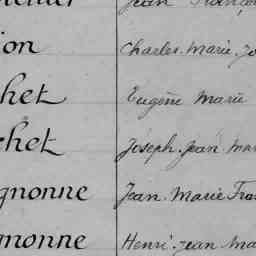 Jean Franço
ion Charles. Marie. Jo
het Eugène Marie
chet Joseph. Jean. Mar
gnonne Jean. Marie Fra
gnonne Henri. Jean. Ma